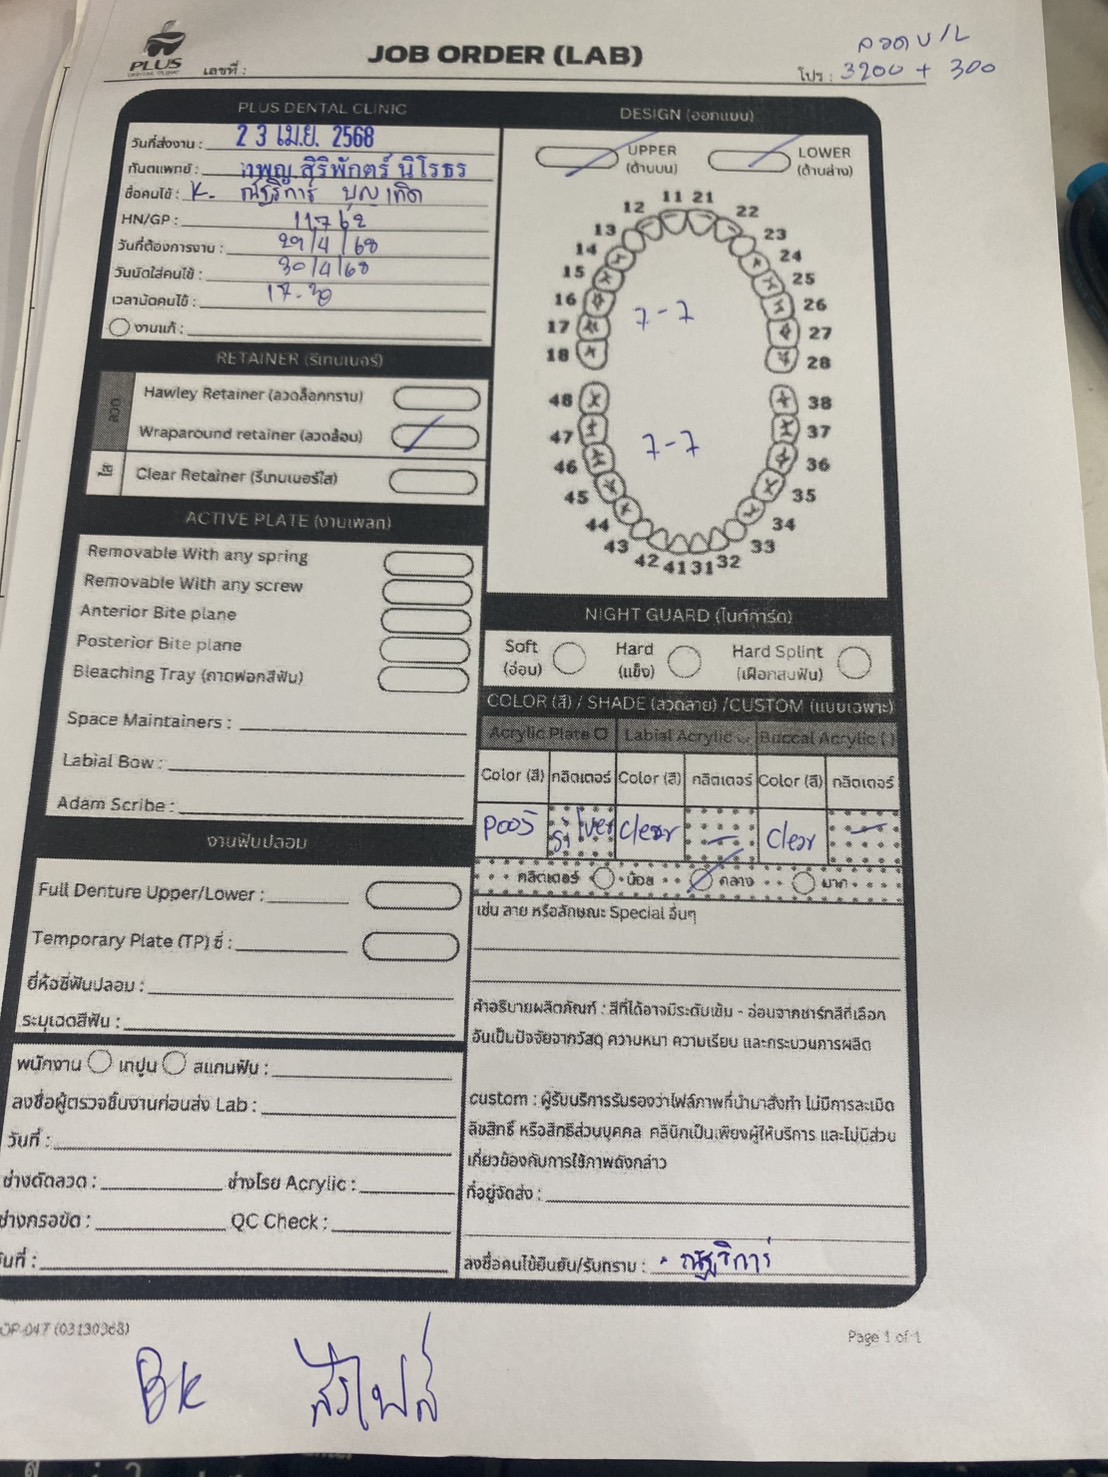 PLUS
DENTAL CLINIC
เลขที่ :
JOB ORDER (LAB)
ลวด U/L
โปร : 3200 + 300
PLUS DENTAL CLINIC
วันที่ส่งงาน : 23 เม.ย. 2568
ทันตแพทย์ : ทพญ. สิริพักตร์ นิโรธร
ชื่อคนไข้ : K. ณัฐริการ์ บุญเกิด
HN/GP : 11762
วันที่ต้องการงาน : 29/4/68
วันนัดใส่คนไข้ : 30/4/68
เวลานัดคนไข้ : 17.30
งานแก้ :
RETAINER (รีเทนเนอร์)
ลวด
Hawley Retainer (ลวดล็อกกราม)
Wraparound retainer (ลวดล้อม)
ใส
Clear Retainer (รีเทนเนอร์ใส)
ACTIVE PLATE (งานเพลท)
Removable With any spring
Removable With any screw
Anterior Bite plane
Posterior Bite plane
Bleaching Tray (ถาดฟอกสีฟัน)
Space Maintainers :
Labial Bow :
Adam Scribe :
งานฟันปลอม
Full Denture Upper/Lower :
Temporary Plate (TP) ซี่ :
ยี่ห้อซี่ฟันปลอม :
ระบุเฉดสีฟัน :
พนักงาน เทปูน สแกนฟัน :
ลงชื่อผู้ตรวจชิ้นงานก่อนส่ง Lab :
วันที่ :
ช่างดัดลวด : ช่างโรย Acrylic :
ช่างกรอขัด : QC Check :
วันที่ :
DESIGN (ออกแบบ)
UPPER (ด้านบน) LOWER (ด้านล่าง)
11 21
12 22
13 23
14 24
15 25
16 26
17 27
18 28
7-7
48 38
47 37
46 36
45 35
44 34
43 33
42 41 31 32
7-7
NIGHT GUARD (ไนท์การ์ด)
Soft (อ่อน) Hard (แข็ง) Hard Splint (เฝือกสบฟัน)
COLOR (สี) / SHADE (ลวดลาย) /CUSTOM (แบบเฉพาะ)
Acrylic Plate Labial Acrylic Buccal Acrylic ( )
Color (สี) กลิตเตอร์ Color (สี) กลิตเตอร์ Color (สี) กลิตเตอร์
P005 Silver Clear — Clear —
กลิตเตอร์ น้อย กลาง มาก
เช่น ลาย หรือลักษณะ Special อื่นๆ
คำอธิบายผลิตภัณฑ์ : สีที่ได้อาจมีระดับเข้ม - อ่อนจากชาร์ทสีที่เลือก
อันเป็นปัจจัยจากวัสดุ ความหนา ความเรียบ และกระบวนการผลิต
custom : ผู้รับบริการรับรองว่าไฟล์ภาพที่นำมาสั่งทำ ไม่มีการละเมิด
ลิขสิทธิ์ หรือสิทธิส่วนบุคคล คลินิกเป็นเพียงผู้ให้บริการ และไม่มีส่วน
เกี่ยวข้องกับการใช้ภาพดังกล่าว
ที่อยู่จัดส่ง :
ลงชื่อคนไข้ยืนยัน/รับทราบ : ณัฐริการ์
OP-047 (03130368)
Page 1 of 1
BK ส่งไฟล์